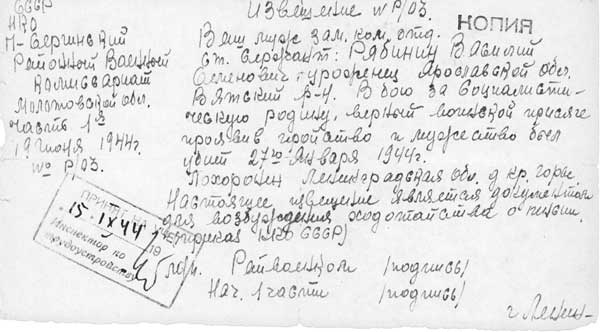 СССР
НКО
П-Вершинский
Районный Военный
Комиссариат
Молотовской обл.
Часть 1я
19 июня 1944г.
№ Р/03.
Извещение № Р/03.
КОПИЯ
Ваш муж зам. ком. отд.
ст. сержант: Рябинин Василий
Семенович уроженец Ярославской обл.
Вятский р-н. В бою за Социалисти-
ческую родину, верный воинской присяге
проявив геройство и мужество был
убит 27го Января 1944г.
Похоронен Ленинградская обл. д кр. горы
Настоящее извещение является документом
для возбуждения ходотайства о пенсии.
НКО СССР)
ПРИНЯТ НА
15 IX 44
Инспектор по
трудоустройству
Райвоенком /подпись/
Нач. 1 части /подпись/